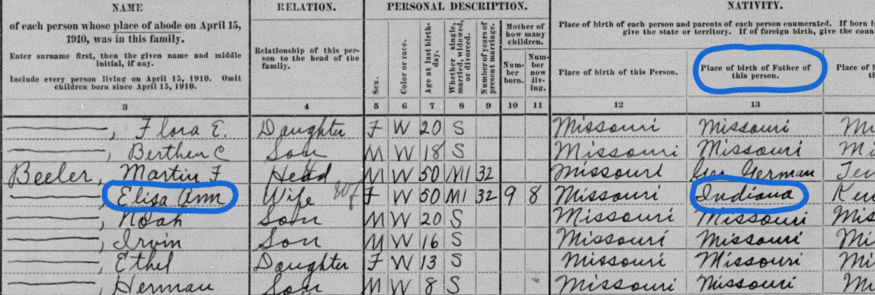 NAME
of each person whose place of abode on April 15, 1910, was in this family.
Enter surname first, then the given name and middle initial, if any.
Include every person living on April 15, 1910. Omit children born since April 15, 1910.
RELATION.
Relationship of this person to the head of the family.
PERSONAL DESCRIPTION.
Sex.
Color or race.
Age at last birthday.
Whether single, married, widowed, or divorced.
Number of years of present marriage.
Mother of how many children.
Number born.
Number now living.
NATIVITY.
Place of birth of each person and parents of each person enumerated. If born
give the state or territory. If of foreign birth, give the
Place of birth of this Person.
Place of birth of Father of this person.
Place of b
3 4 5 6 7 8 9 10 11 12 13
, Flora E. Daughter F W 20 S Missouri Missouri
, Berthen C Son M W 18 S Missouri Missouri
Beeler, Martin F Head M W 50 M1 32 Missouri Ger German
, Eliza Ann Wife F W 50 M1 32 9 8 Missouri Indiana
, Noah Son M W 20 S Missouri Missouri
, Irvin Son M W 16 S Missouri Missouri
, Ethel Daughter F W 13 S Missouri Missouri
, Herman Son M W 8 S Missouri Missouri